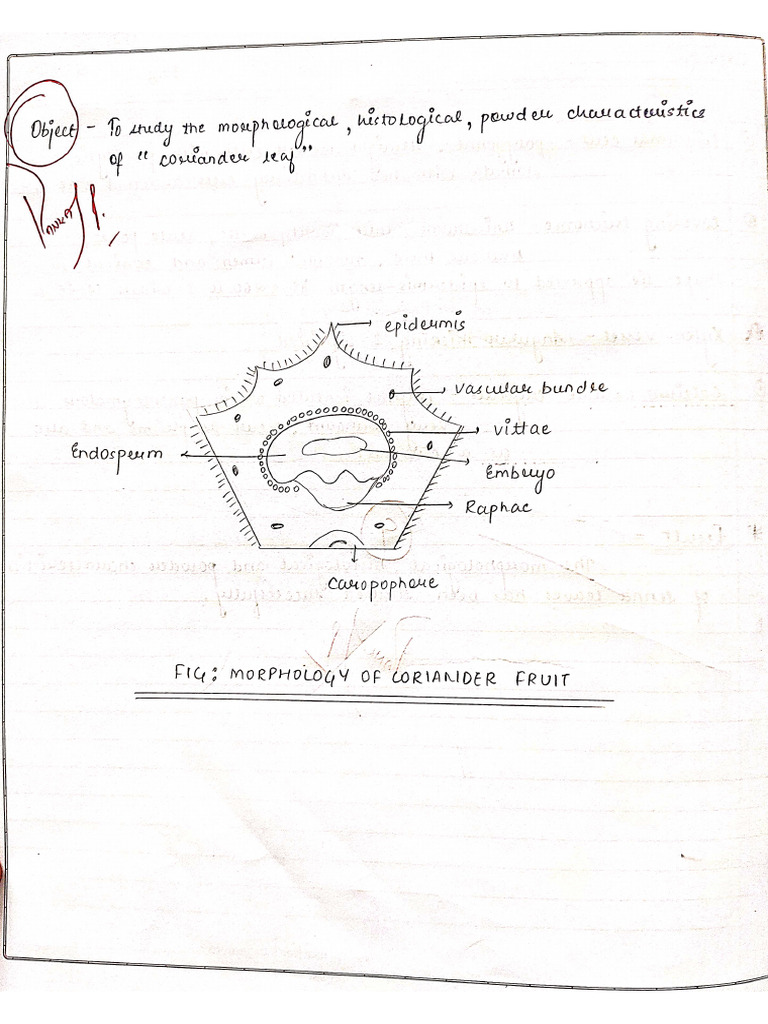 Object - To study the morphological, histological, powder characteristics
of "coriander leaf"
epidermis
vascular bundle
vittae
Endosperm
Embryo
Raphae
Caropophore
FIG: MORPHOLOGY OF CORIANDER FRUIT